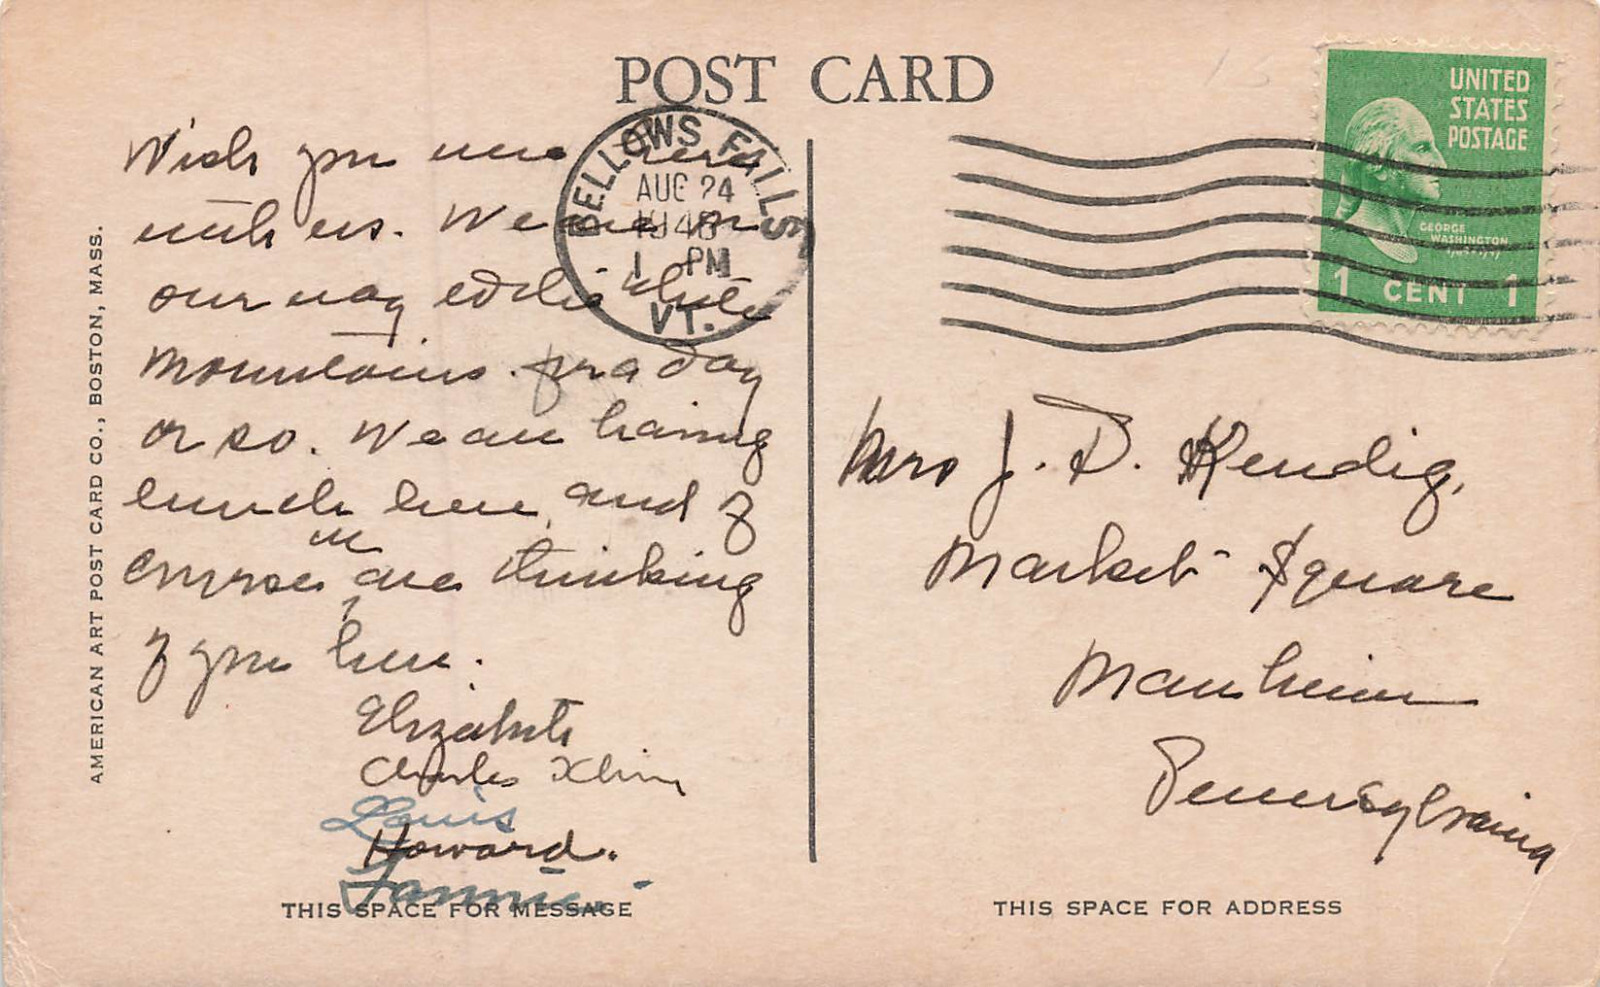 POST CARD
Wish you were here
with us. We are on
our way to the White
Mountains for a day
or so. We are having
lunch here, and of
course we are thinking
of you here.
Elizabeth
Charles
Louis
Howard.
Fannie
THIS SPACE FOR MESSAGE
AMERICAN ART POST CARD CO., BOSTON, MASS.
BELLOWS FALLS
AUG 24
1 PM
VT.
UNITED
STATES
POSTAGE
GEORGE
WASHINGTON
1 CENT 1
Mrs J. D. Kendig,
Market Square
Manheim
Pennsylvania
THIS SPACE FOR ADDRESS